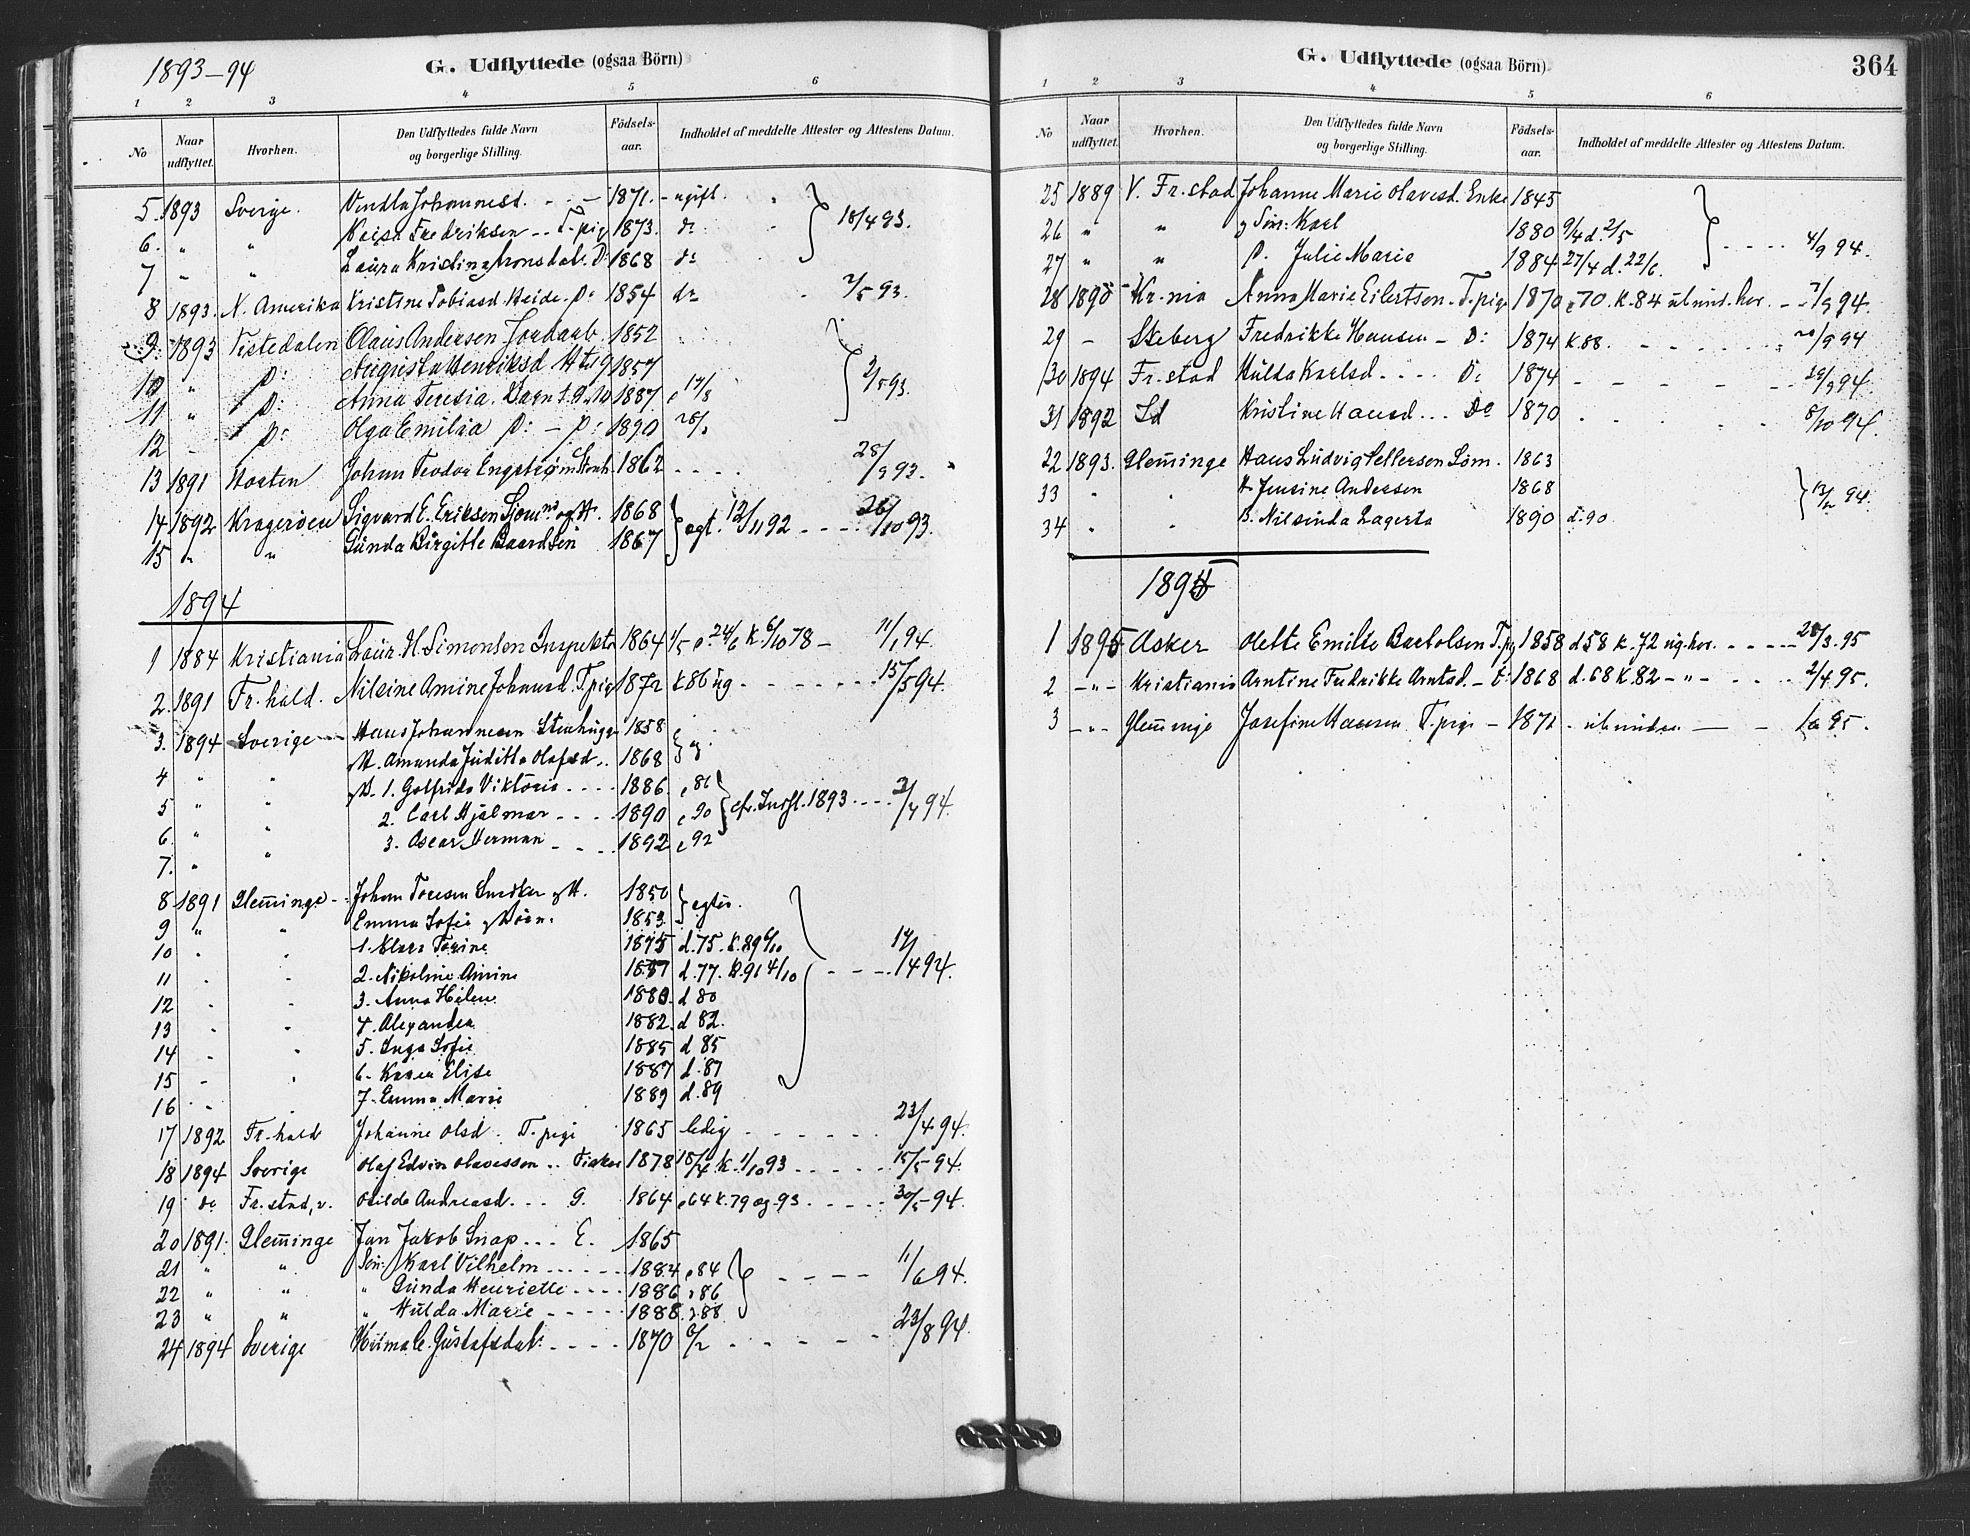 1893-94
G. Udflyttede (ogsaa Börn)
1 2 3 4 5 6
No Naar udflyttet. Hvorhen. Den Udflyttedes fulde Navn og borgerlige Stilling. Födsels-aar. Indholdet af meddelte Attester og Attestens Datum.
5. 1893 Sverige. Vendla Johannesd. - - - 1871. - ugift.
6. " " Fredriksen - - T.pig 1873. do 18/4 93.
7 - " Laura Kristina D: 1868 do
8 1893. N. Amerika Kristine Tobiasd Heide. D: 1854 do 2/5 93.
9. 1893 Tistedalen Olaus Andersen 1852
10 " D: Augusta Henriksd 1857
11 " D: Anna Teresia. Barn 1887. 2/5 93.
12 - D: Olga Emilia D: - D: 1890
13 1891 Horten Johan Teodor Engström 1862 - - - - 28/9 93.
14 1892 Kragerøen Sigvard E. Eriksen Sjøm. og H. 1868
15 do " Gunda Birgitte Baardsen 1867 egt. 12/11 92 - - - 26/10 93.
1894
1 1884 Kristiania Laur. H. Simonsen Inspektø 1864 K. 6/10 78 - 11/1 94.
2. 1891 Fr.hald. Nilsine Amine Johannesd. T.pig 1872 K 86 ug - - - - - - 15/3 94.
3. 1894 Sverige Hans Johannesen Stenhugg. 1858
4 " " H. Amanda Juditta Olafsd.. 1868
5 " " B. 1. Golfrida Viktoria - - - - 1886. 86
6. " " 2. Carl Hjalmar - - - 1890 90 cfr. Indfl. 1893 - - - - 94.
7. " " 3. Oscar Herman - - - 1892 92
8 1891 Glem̄inge - Johan Toresen Snedker og H. 1850
9 " " Emma Sofie og Børn. 1853 egtev.
10 . . 1. Klara Torine 1875 d. 75. K. 89 6/10
11 . . 2. Nikoline Amine 1877 d. 77. K. 91 4/10 - - - 14/4 94.
12 - . 3. Anna Helene 1880. d 80
13 . . 4. Alexander 1882. d 82.
14 - . 5. Inga Sofie 1885 d 85
15 - . 6. Karen Elise 1887 d. 87
16 . . 7. Emma Marie 1889 d. 89
17 1892 Fr.hald Johanne Olsd. T.pige 1865 ledig - - - - - - 23/4 94.
18 1894 Sverige Olaf Edvin Olavessen.. Fisker 1878 K. 1/10 93 - - - - - 15/5 94.
19 do Fr.stad, v. Otilde Andreasd. - - - G. 1864 64 K. 79 og. 93 - - - - - 30/5 94.
20 1891. Glem̄inge Jan Jakob Snap. - - E. 1865
21 " " Søn: Karl Vilhelm - - - - - 1884 84
22 " " " Gunda Henriette - - - - 1886 86 - - - - 11/6 94.
23 " " " Hulda Marie - - - - - 1888 88
24 1894 Sverige Hilma C. Gustafsdat: - - - - 1870 6/2 - - - - - 23/8 94.
G. Udflyttede (ogsaa Börn)
364
1 2 3 4 5 6
No Naar udflyttet. Hvorhen. Den Udflyttedes fulde Navn og borgerlige Stilling. Födsels-aar. Indholdet af meddelte Attester og Attestens Datum.
25 1889 V. Fr.stad Johanne Marie Olavesd. Enke 1845
26 " " Søn: Karl 1880 9/4 d. 2/5 - - - - 4/9 94.
27 " " D. Julie Marie 1884 27/4 d. 22/6.
28 1890 Kr.nia Anna Marie Eilertsen - T.pige 1870 70. K. 84 - - 7/9 94.
29 - Skeberg Fredrikke Hansen - D: 1874 K 88. - - - - - 20/9 94
30 1894 Fr.stad Hulda Karlsd - - - - D: 1874 - - - - - 29/9 94.
31 1892 Sd Kristine Hansd... Do 1870 8/10 94.
22 1893. Glem̄inge Hans Ludvig Pettersen Søm. 1863
33 " " H. Jensine Andersen 1868 94.
34 . . B. Nilsinda Lagerta 1890 d. 90
1895
1 1895 Asker Olette Emilie Bartolsen T.pig 1858 d 58 K. 72 ug. - - - - 28/3. 95
2 -"- Kristiania Arntine Fredrikke Arntsd. - D: 1868 d. 68 K. 82 - " - - - - - 2/4 95.
3 -"- Glem̄inge Josefine Hansen T.pige - 1871 - - 95.